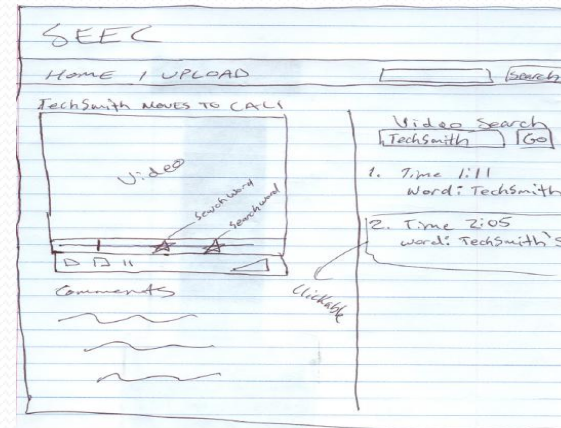 SEEC
HOME / UPLOAD
Search
TechSmith MOVES TO CALI
Video
Search word
Search word
Comments
Video Search
TechSmith Go
1. Time 1:11
Word: TechSmith
2. Time 2:05
word: TechSmith's
Clickable